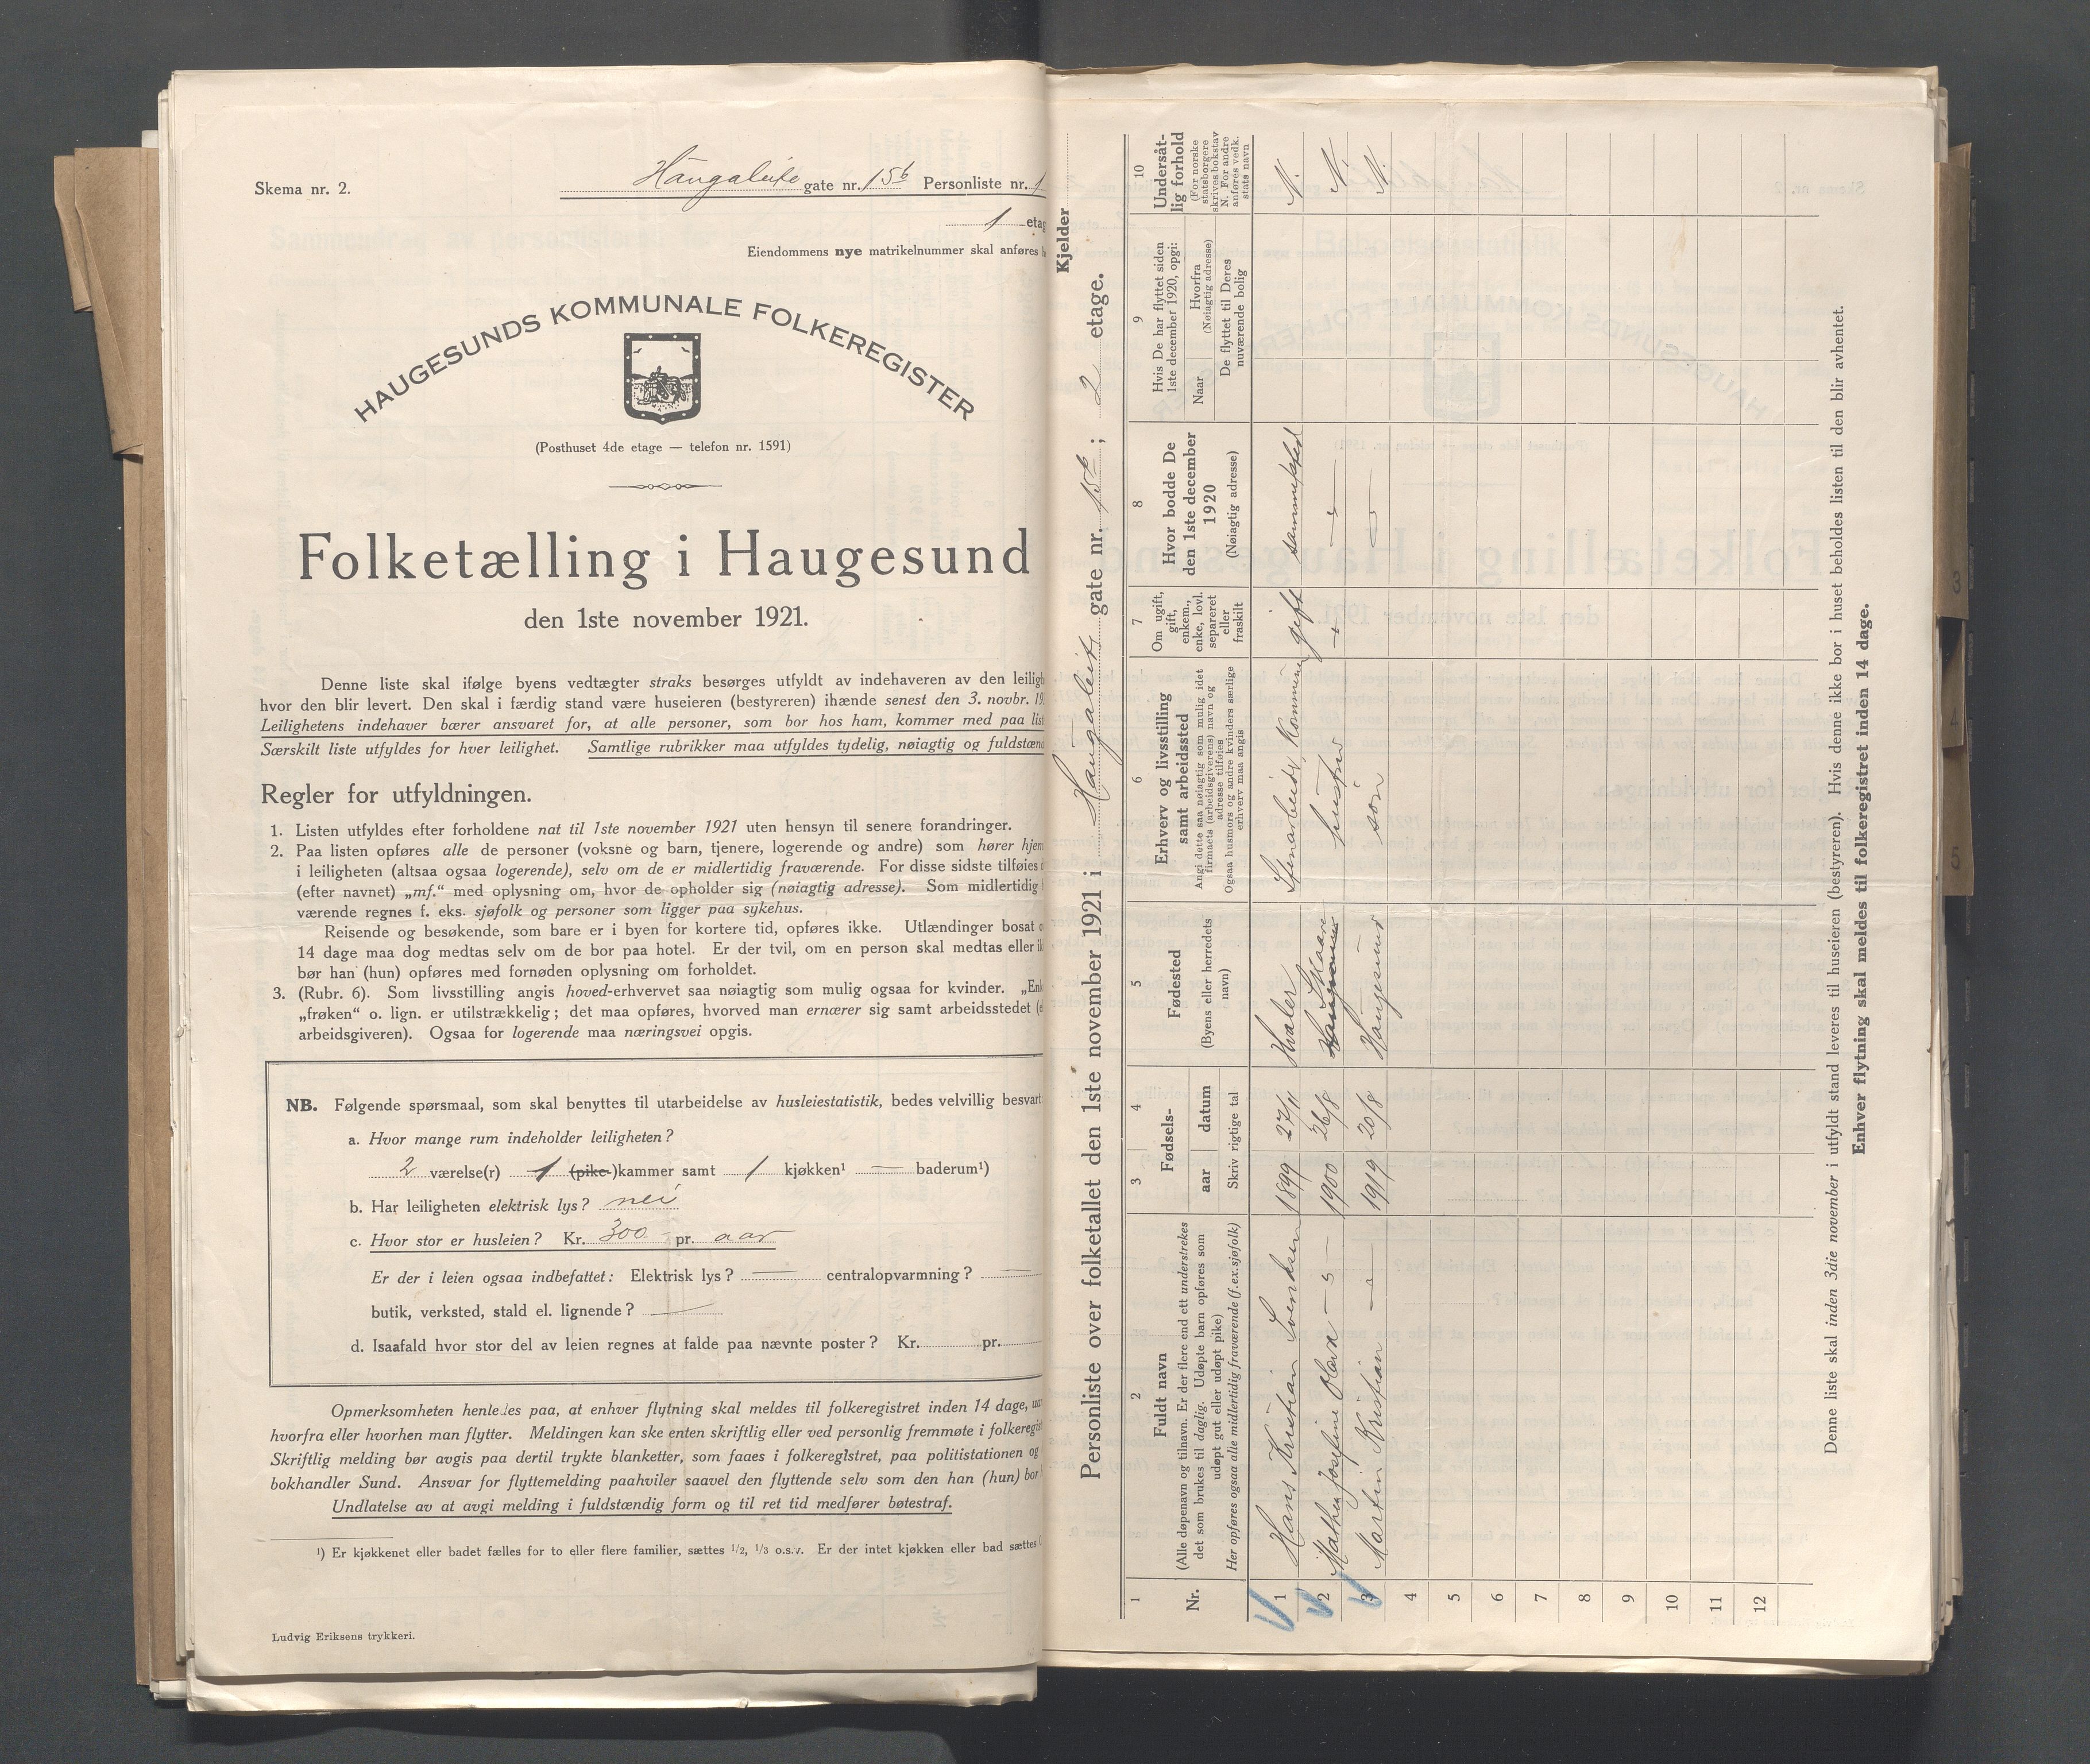 Skema nr. 2.
Haugaleite gate nr. 15b Personliste nr. 1
1 etag
Eiendommens nye matrikelnummer skal anføres h
HAUGESUNDS KOMMUNALE FOLKEREGISTER
(Posthuset 4de etage — telefon nr. 1591)
Folketælling i Haugesund
den 1ste november 1921.
Denne liste skal ifølge byens vedtægter straks besørges utfyldt av indehaveren av den leiligh
hvor den blir levert. Den skal i færdig stand være huseieren (bestyreren) ihænde senest den 3. novbr. 19
Leilighetens indehaver bærer ansvaret for, at alle personer, som bor hos ham, kommer med paa list
Særskilt liste utfyldes for hver leilighet. Samtlige rubrikker maa utfyldes tydelig, nøiagtig og fuldstænd
Regler for utfyldningen.
1. Listen utfyldes efter forholdene nat til 1ste november 1921 uten hensyn til senere forandringer.
2. Paa listen opføres alle de personer (voksne og barn, tjenere, logerende og andre) som hører hjem
i leiligheten (altsaa ogsaa logerende), selv om de er midlertidig fraværende. For disse sidste tilføies d
(efter navnet) „mf.“ med oplysning om, hvor de opholder sig (nøiagtig adresse). Som midlertidig
værende regnes f. eks. sjøfolk og personer som ligger paa sykehus.
Reisende og besøkende, som bare er i byen for kortere tid, opføres ikke. Utlændinger bosat o
14 dage maa dog medtas selv om de bor paa hotel. Er der tvil, om en person skal medtas eller ik
bør han (hun) opføres med fornøden oplysning om forholdet.
3. (Rubr. 6). Som livsstilling angis hoved-erhvervet saa nøiagtig som mulig ogsaa for kvinder. „Enk
„frøken“ o. lign. er utilstrækkelig; det maa opføres, hvorved man ernærer sig samt arbeidsstedet (e
arbeidsgiveren). Ogsaa for logerende maa næringsvei opgis.
NB. Følgende spørsmaal, som skal benyttes til utarbeidelse av husleiestatistik, bedes velvillig besvart:
a. Hvor mange rum indeholder leiligheten?
2 værelse(r) 1 (pike-)kammer samt 1 kjøkken¹ — baderum¹)
b. Har leiligheten elektrisk lys? nei
c. Hvor stor er husleien? Kr. 300 - pr. aar
Er der i leien ogsaa indbefattet: Elektrisk lys? — centralopvarmning? —
butik, verksted, stald el. lignende? —
d. Isaafald hvor stor del av leien regnes at falde paa nævnte poster? Kr. pr.
Opmerksomheten henledes paa, at enhver flytning skal meldes til folkeregistret inden 14 dage, uan
hvorfra eller hvorhen man flytter. Meldingen kan ske enten skriftlig eller ved personlig fremmøte i folkeregis
Skriftlig melding bør avgis paa dertil trykte blanketter, som faaes i folkeregistret, paa politistationen og
bokhandler Sund. Ansvar for flyttemelding paahviler saavel den flyttende selv som den han (hun) bor h
Undlatelse av at avgi melding i fuldstændig form og til ret tid medfører bøtestraf.
¹) Er kjøkkenet eller badet fælles for to eller flere familier, sættes 1/2, 1/3 o.s.v. Er der intet kjøkken eller bad sættes 0
Ludvig Eriksens trykkeri.
Kjelder
Personliste over folketallet den 1ste november 1921 i Haugaleite gate nr. 15b; 2 etage.
1 2 3 4 5 6 7 8 9 10
Nr.
Fuldt navn
(Alle døpenavn og tilnavn. Er der flere end ett understrekes
det som brukes til daglig. Udøpte barn opføres som
udøpt gut eller udøpt pike)
Her opføres ogsaa alle midlertidig fraværende (f.ex.sjøfolk)
Fødsels-
aar datum
Skriv rigtige tal
Fødested
(Byens eller herredets
navn)
Erhverv og livsstilling
samt arbeidssted
Angi dette saa nøiagtig som mulig idet
firmaets (arbeidsgiverens) navn og
adresse tilføies
Ogsaa husmors og andre kvinders særlige
erhverv maa angis
Om ugift,
gift,
enkem.,
enke, lovl.
separeret
eller
fraskilt
Hvor bodde De
den 1ste december
1920
(Nøiagtig adresse)
Hvis De har flyttet siden
1ste december 1920, opgi:
Naar Hvorfra
(Nøiagtig adresse)
De flyttet til Deres
nuværende bolig
Undersåt-
lig forhold
(For norske
statsborgere
skrives bokstav
N. For andre
anføres vedk.
stats navn
1 Hans Kristian Svendsen 1899 27/11 Hvaler Stenarbeider, Kommune gift sammested N.
2 Mathea Josefine Olava — " — 1900 26/8 Haugesund Skaare hustru — " — N.
3 Martin Kristian — " — 1919 20/8 Haugesund søn — " — N.
4
5
6
7
8
9
10
11
12
Denne liste skal inden 3die november i utfyldt stand leveres til huseieren (bestyreren). Hvis denne ikke bor i huset beholdes listen til den blir avhentet.
Enhver flytning skal meldes til folkeregistret inden 14 dage.
3
4
5